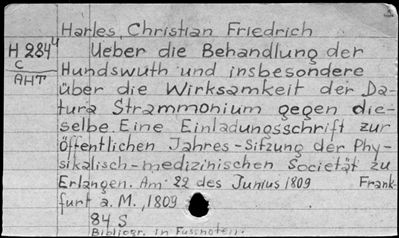 Harles, Christian Friedrich
H 284u Ueber die Behandlung der
C
AHT
Hundswuth und insbesondere
über die Wirksamkeit der Da-
tura Strammonium gegen die-
selbe. Eine Einladungsschrift zur
Öffentlichen Jahres-Sitzung der Phy-
sikalisch-medizinischen Societät zu
Erlangen. Am 22 des Junius 1809 Frank-
furt a. M., 1809
84 S
Bibliogr. in Fussnoten.